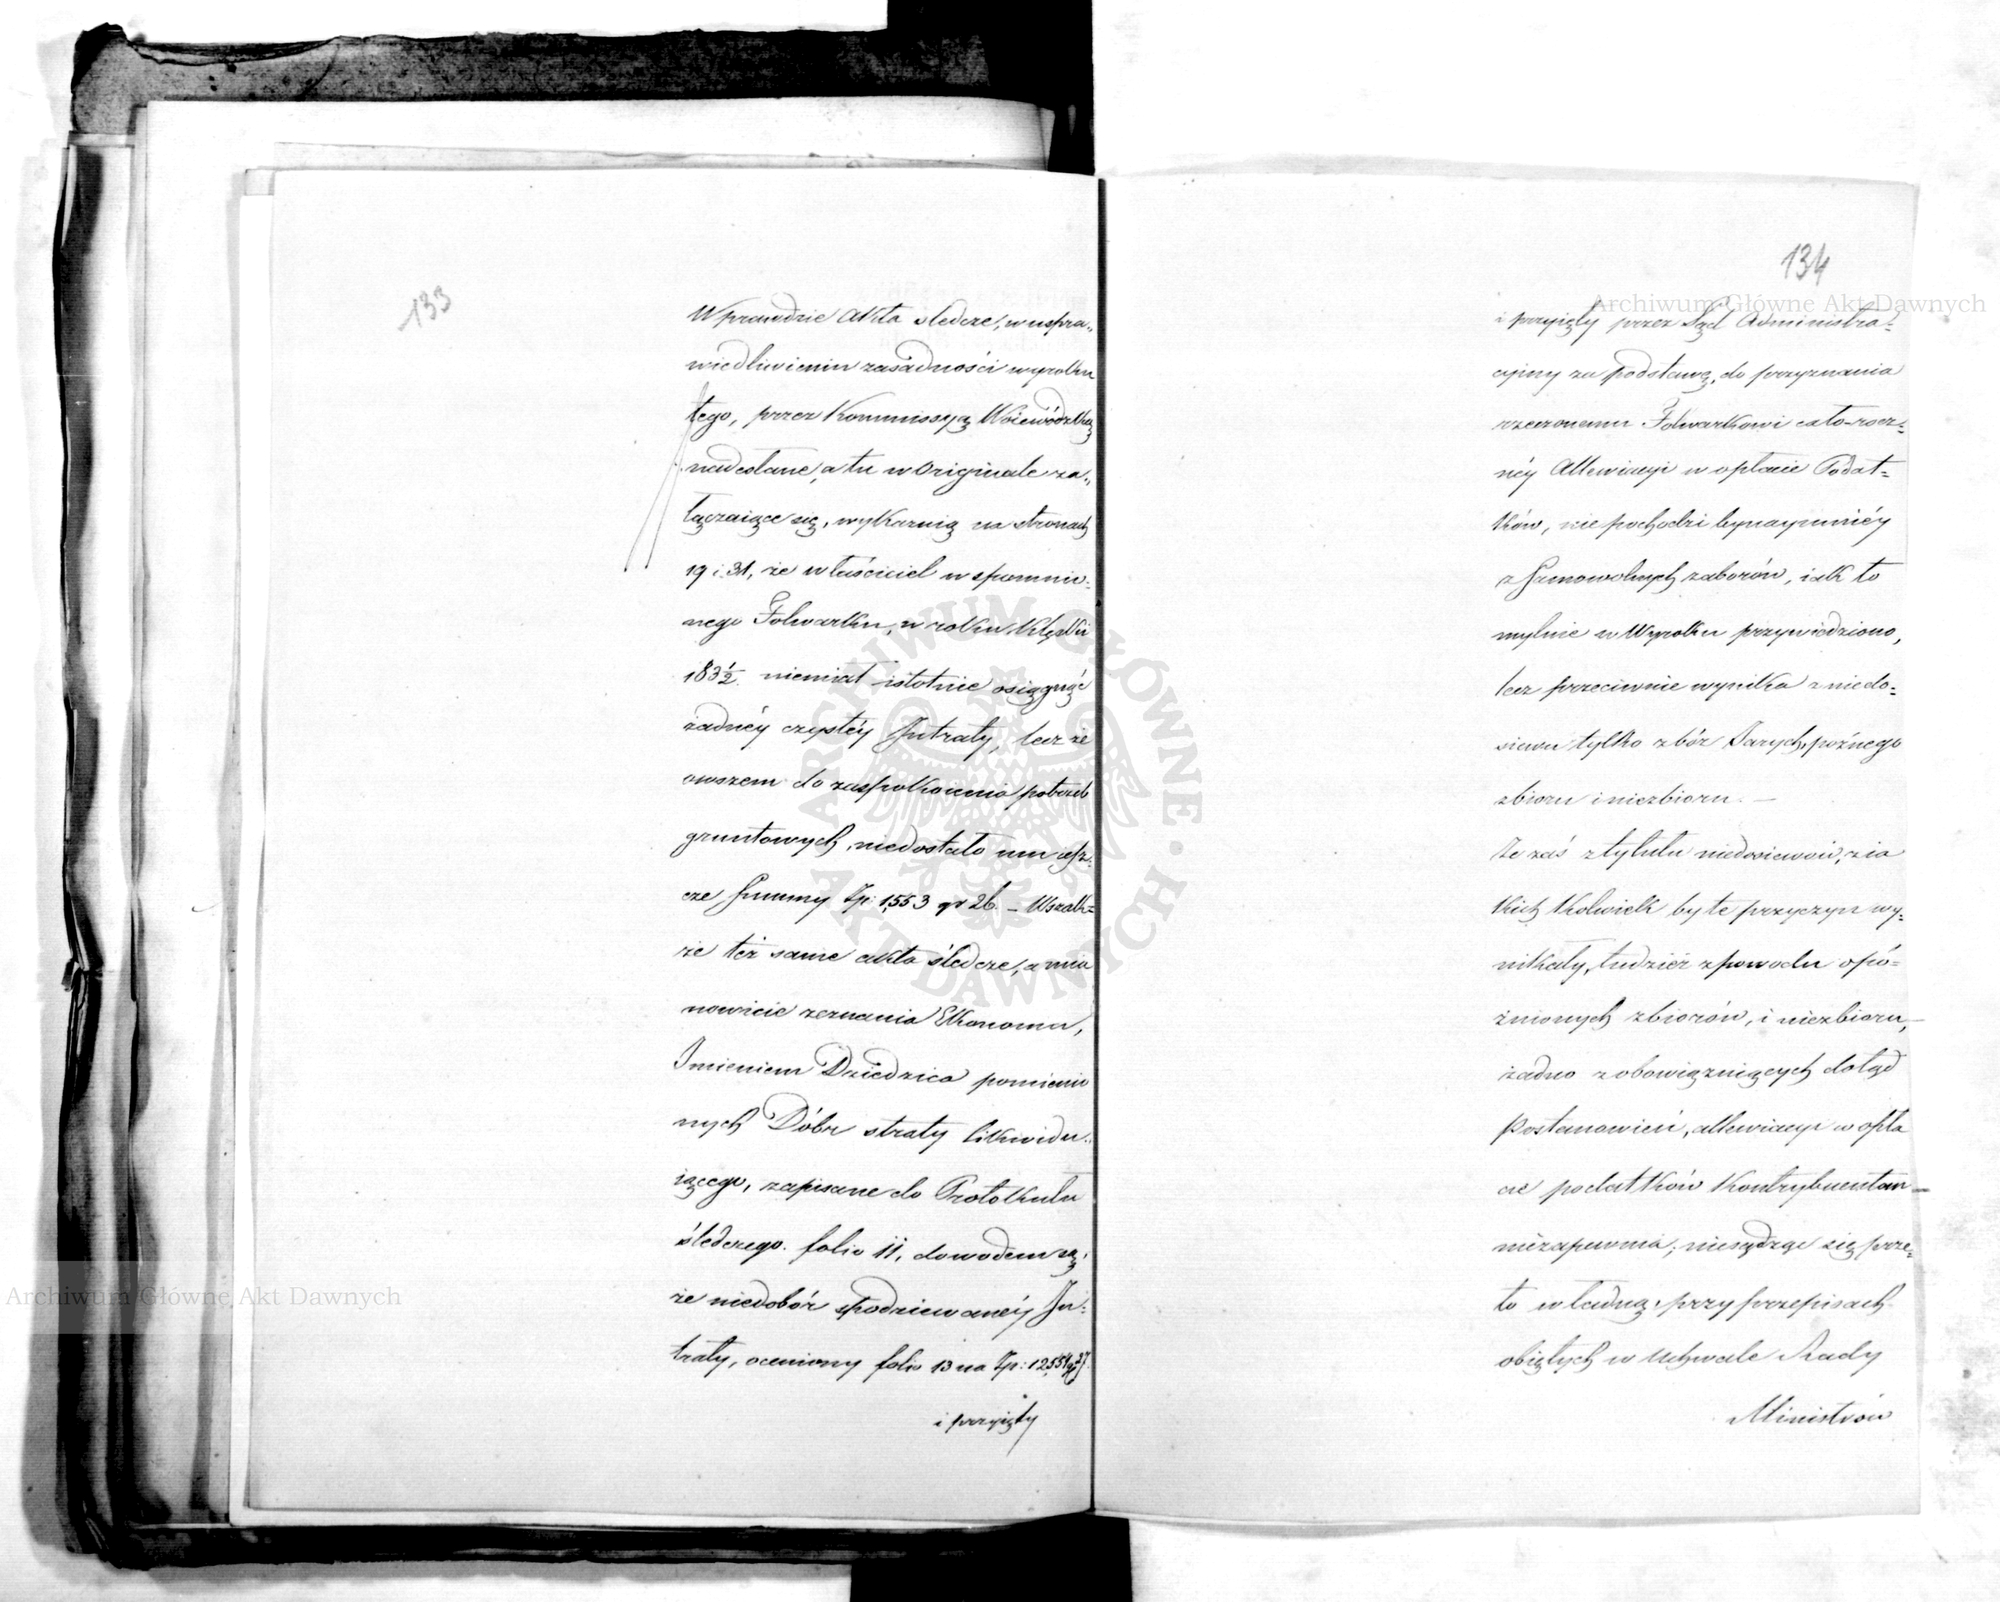 133
Wprawdzie Akta śledcze, w uspra„
wiedliwieniu zasadności wyroku
tego, przez Kommissyą Woiewódzką
nadesłane, a tu w Originale za„
łączaiące się, wykazuią na stronach
19 i 31, że właściciel wspomnio„
nego Folwarku, w roku klęski
183½ niemiał istotnie osiągnąć
żadnéy czystéy Intraty, lecz że
owszem do zaspokoienia potrzeb
gruntowych, niedostało mu iesz„
cze Summy Zp: 1,553 gr 26. – Wszak=
że też same akta śledcze, a mia
nowicie zeznania Ekonoma,
Imieniem Dziedzica pomienio
nych Dóbr straty likwidu„
iącego, zapisane do Protokułu
śledczego folio 11, dowodem są,
że niedobór spodziewanéy In=
traty, oceniony folio 13 na Zp:
i przyięty
134
i przyięty przez Sąd Administra=
cyiny za podstawę, do przyznania
rzeczonemu Folwarkowi cało-rocz=
néy Allewiacyi w opłacie Podat=
ków, nie pochodzi bynaymniéy
z samowolnych zaborów, iak to
mylnie w Wyroku przywiedziono,
lecz przeciwnie wynika z niedo=
siewu tylko zbóż Jarych, poźnego
zbioru i niezbioru. –
Że zaś z tytułu niedosiewów, z ia
kich kolwiek by te przyczyn wy=
nikały, tudzież z powodu opó=
źnionych zbiorów, i niezbioru,
żadne z obowiązuiących dotąd
Postanowień, allewiacyi w opła
cie podatków Kontrybuentom
niezapewnia; niesądząc się prze=
to władną, przy przepisach
obiętych w Uchwale Rady
Ministrów
Archiwum Główne Akt Dawnych
Archiwum Główne Akt Dawnych
ARCHIWUM GŁÓWNE · AKT DAWNYCH ·